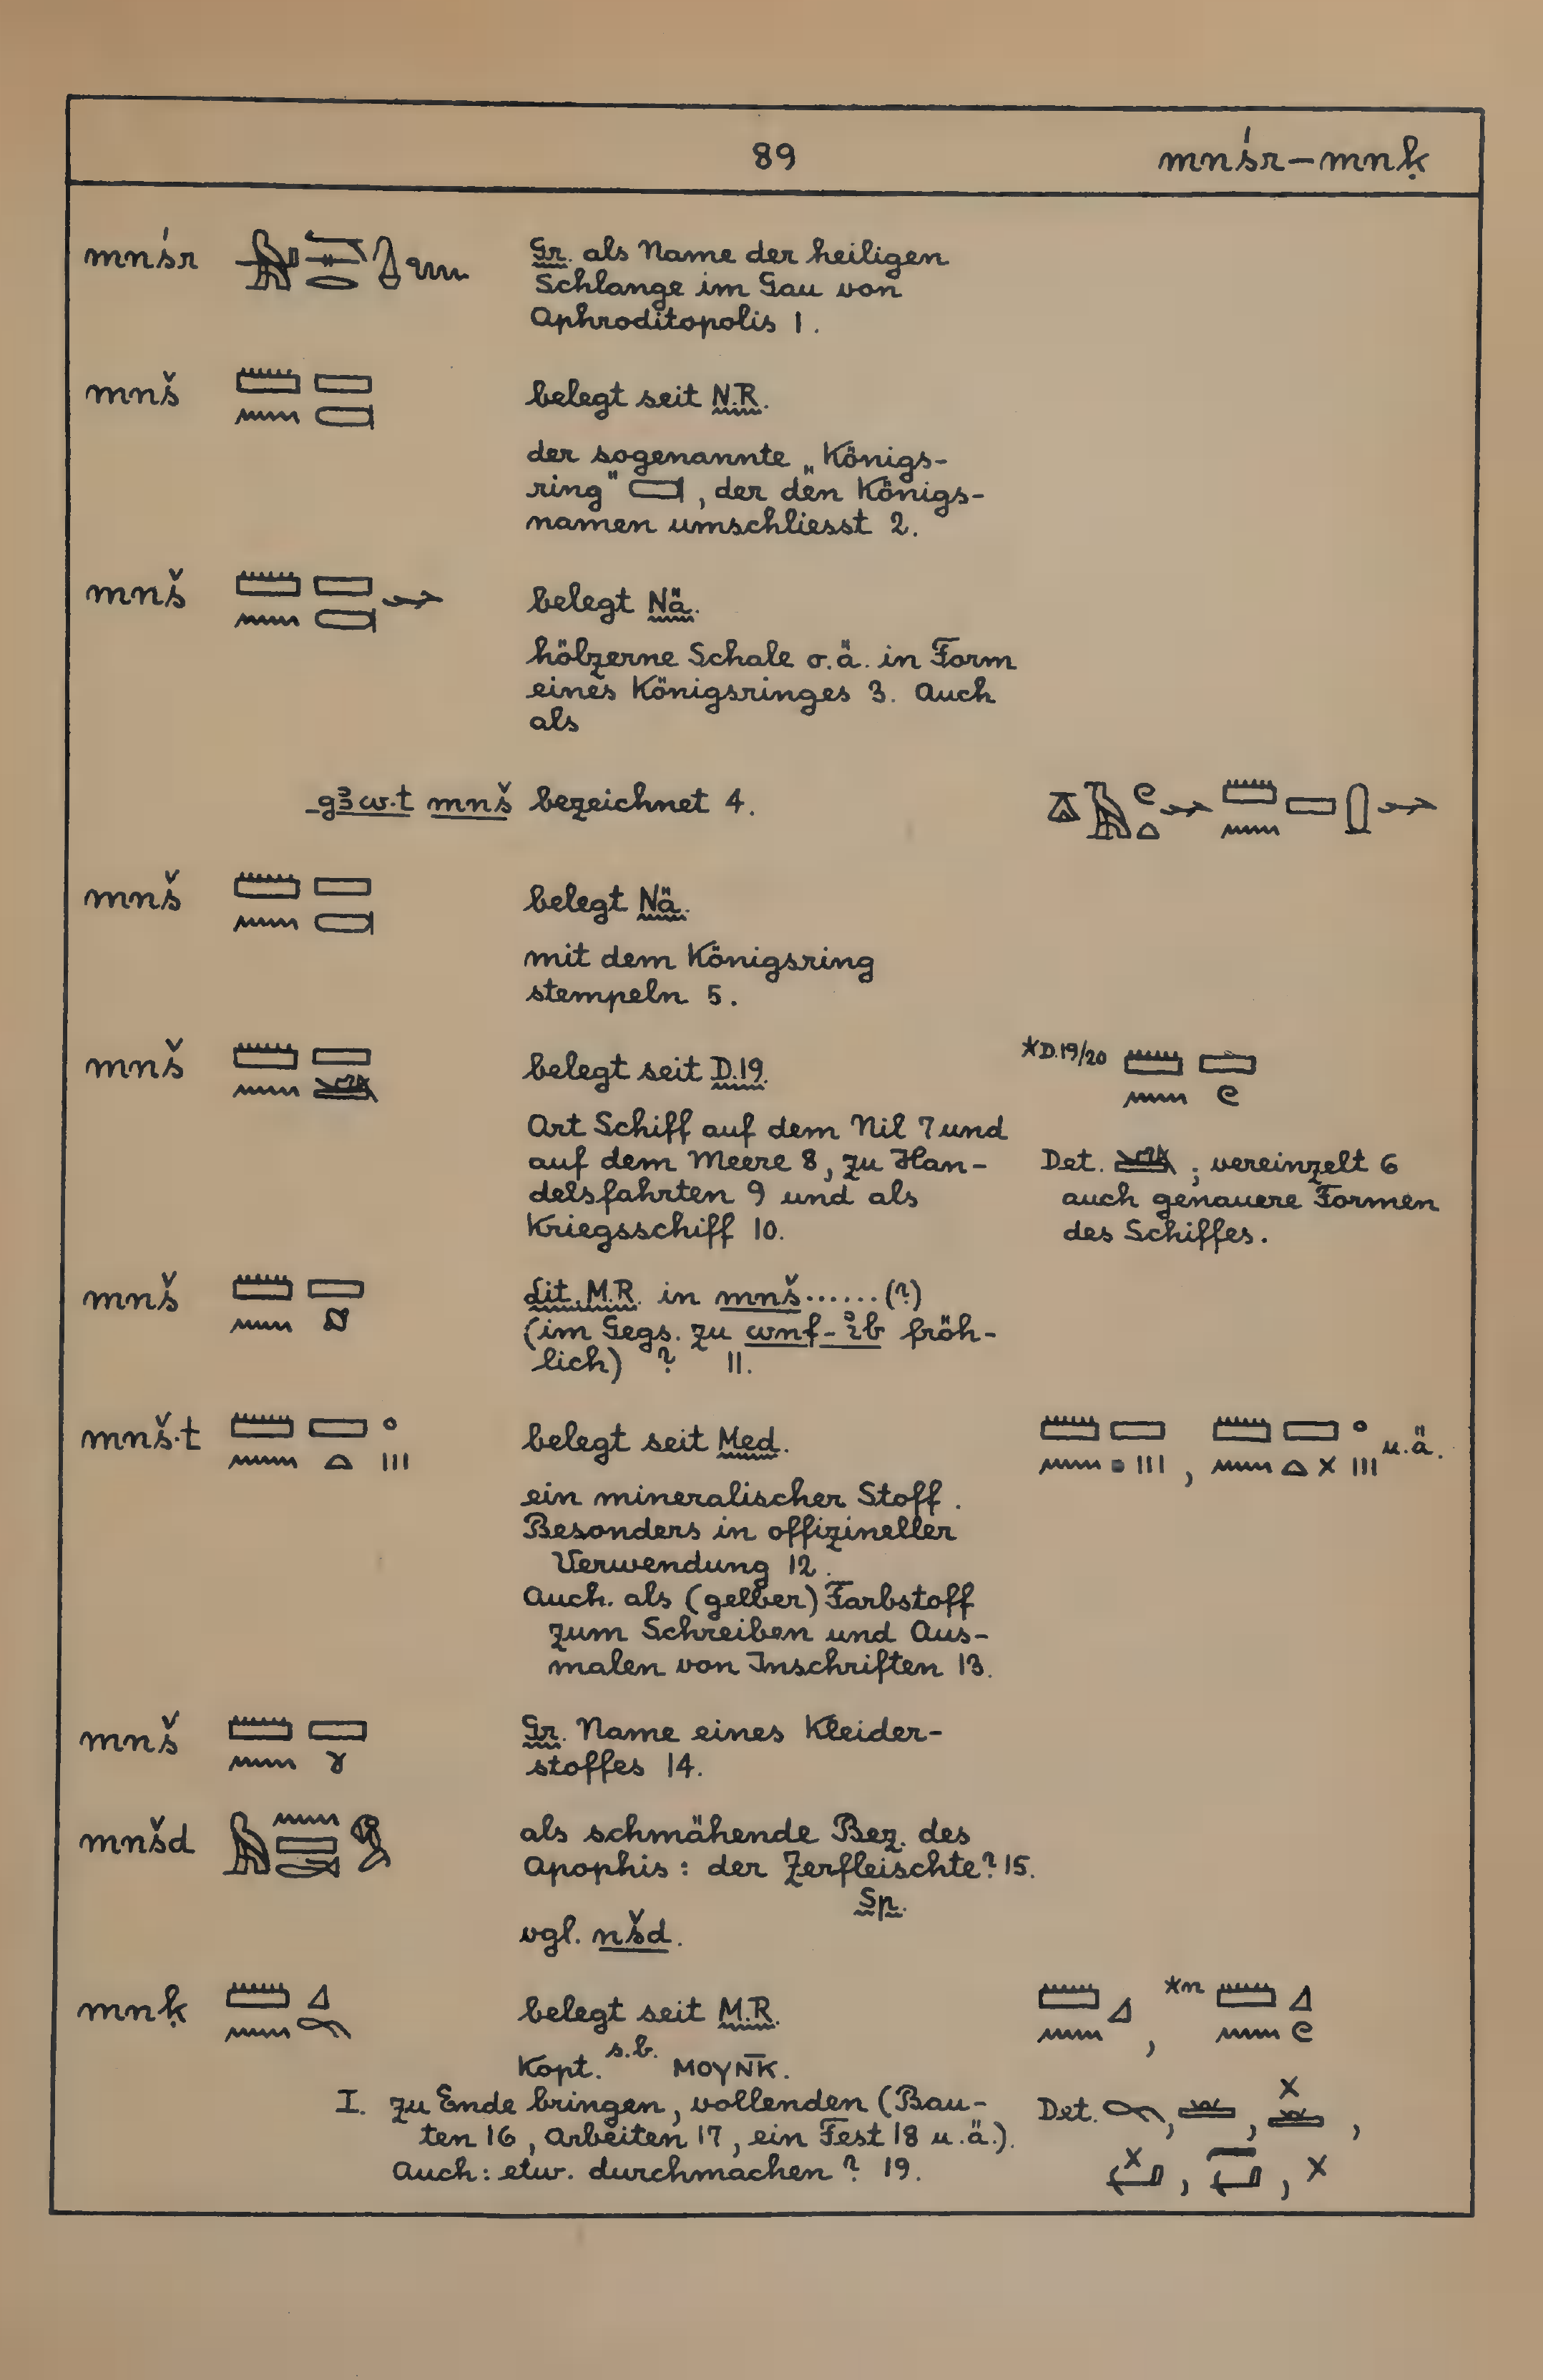 89 mnśr–mnḳ
mnśr Gr. als Name der heiligen
Schlange im Gau von
Aphroditopolis 1.
mnš belegt seit N.R.
der sogenannte „Königs-
ring", der den Königs-
namen umschliesst 2.
mnš belegt Nä.
hölzerne Schale o.ä. in Form
eines Königsringes 3. Auch
als
g3w.t mnš bezeichnet 4.
mnš belegt Nä.
mit dem Königsring
stempeln 5.
mnš belegt seit D.19. *D.19/20
Art Schiff auf dem Nil 7 und
auf dem Meere 8, zu Han-
delsfahrten 9 und als
Kriegsschiff 10.
Det. ; vereinzelt 6
auch genauere Formen
des Schiffes.
mnš Lit. M.R. in mnš......(?)
(im Gegs. zu wnf-ib fröh-
lich) ? 11.
mnš.t belegt seit Med. , u.ä.
ein mineralischer Stoff.
Besonders in offizineller
Verwendung 12.
Auch als (gelber) Farbstoff
zum Schreiben und Aus-
malen von Inschriften 13.
mnš Gr. Name eines Kleider-
stoffes 14.
mnšd als schmähende Bez. des
Apophis: der Zerfleischte? 15.
Sp.
vgl. nšd.
mnḳ belegt seit M.R. , *n
Kopt. s.b. ⲙⲟⲩⲛ̅ⲕ.
I. zu Ende bringen, vollenden (Bau-
ten 16, Arbeiten 17, ein Fest 18 u.ä.).
Auch: etw. durchmachen? 19.
Det. , , ,
, , ×